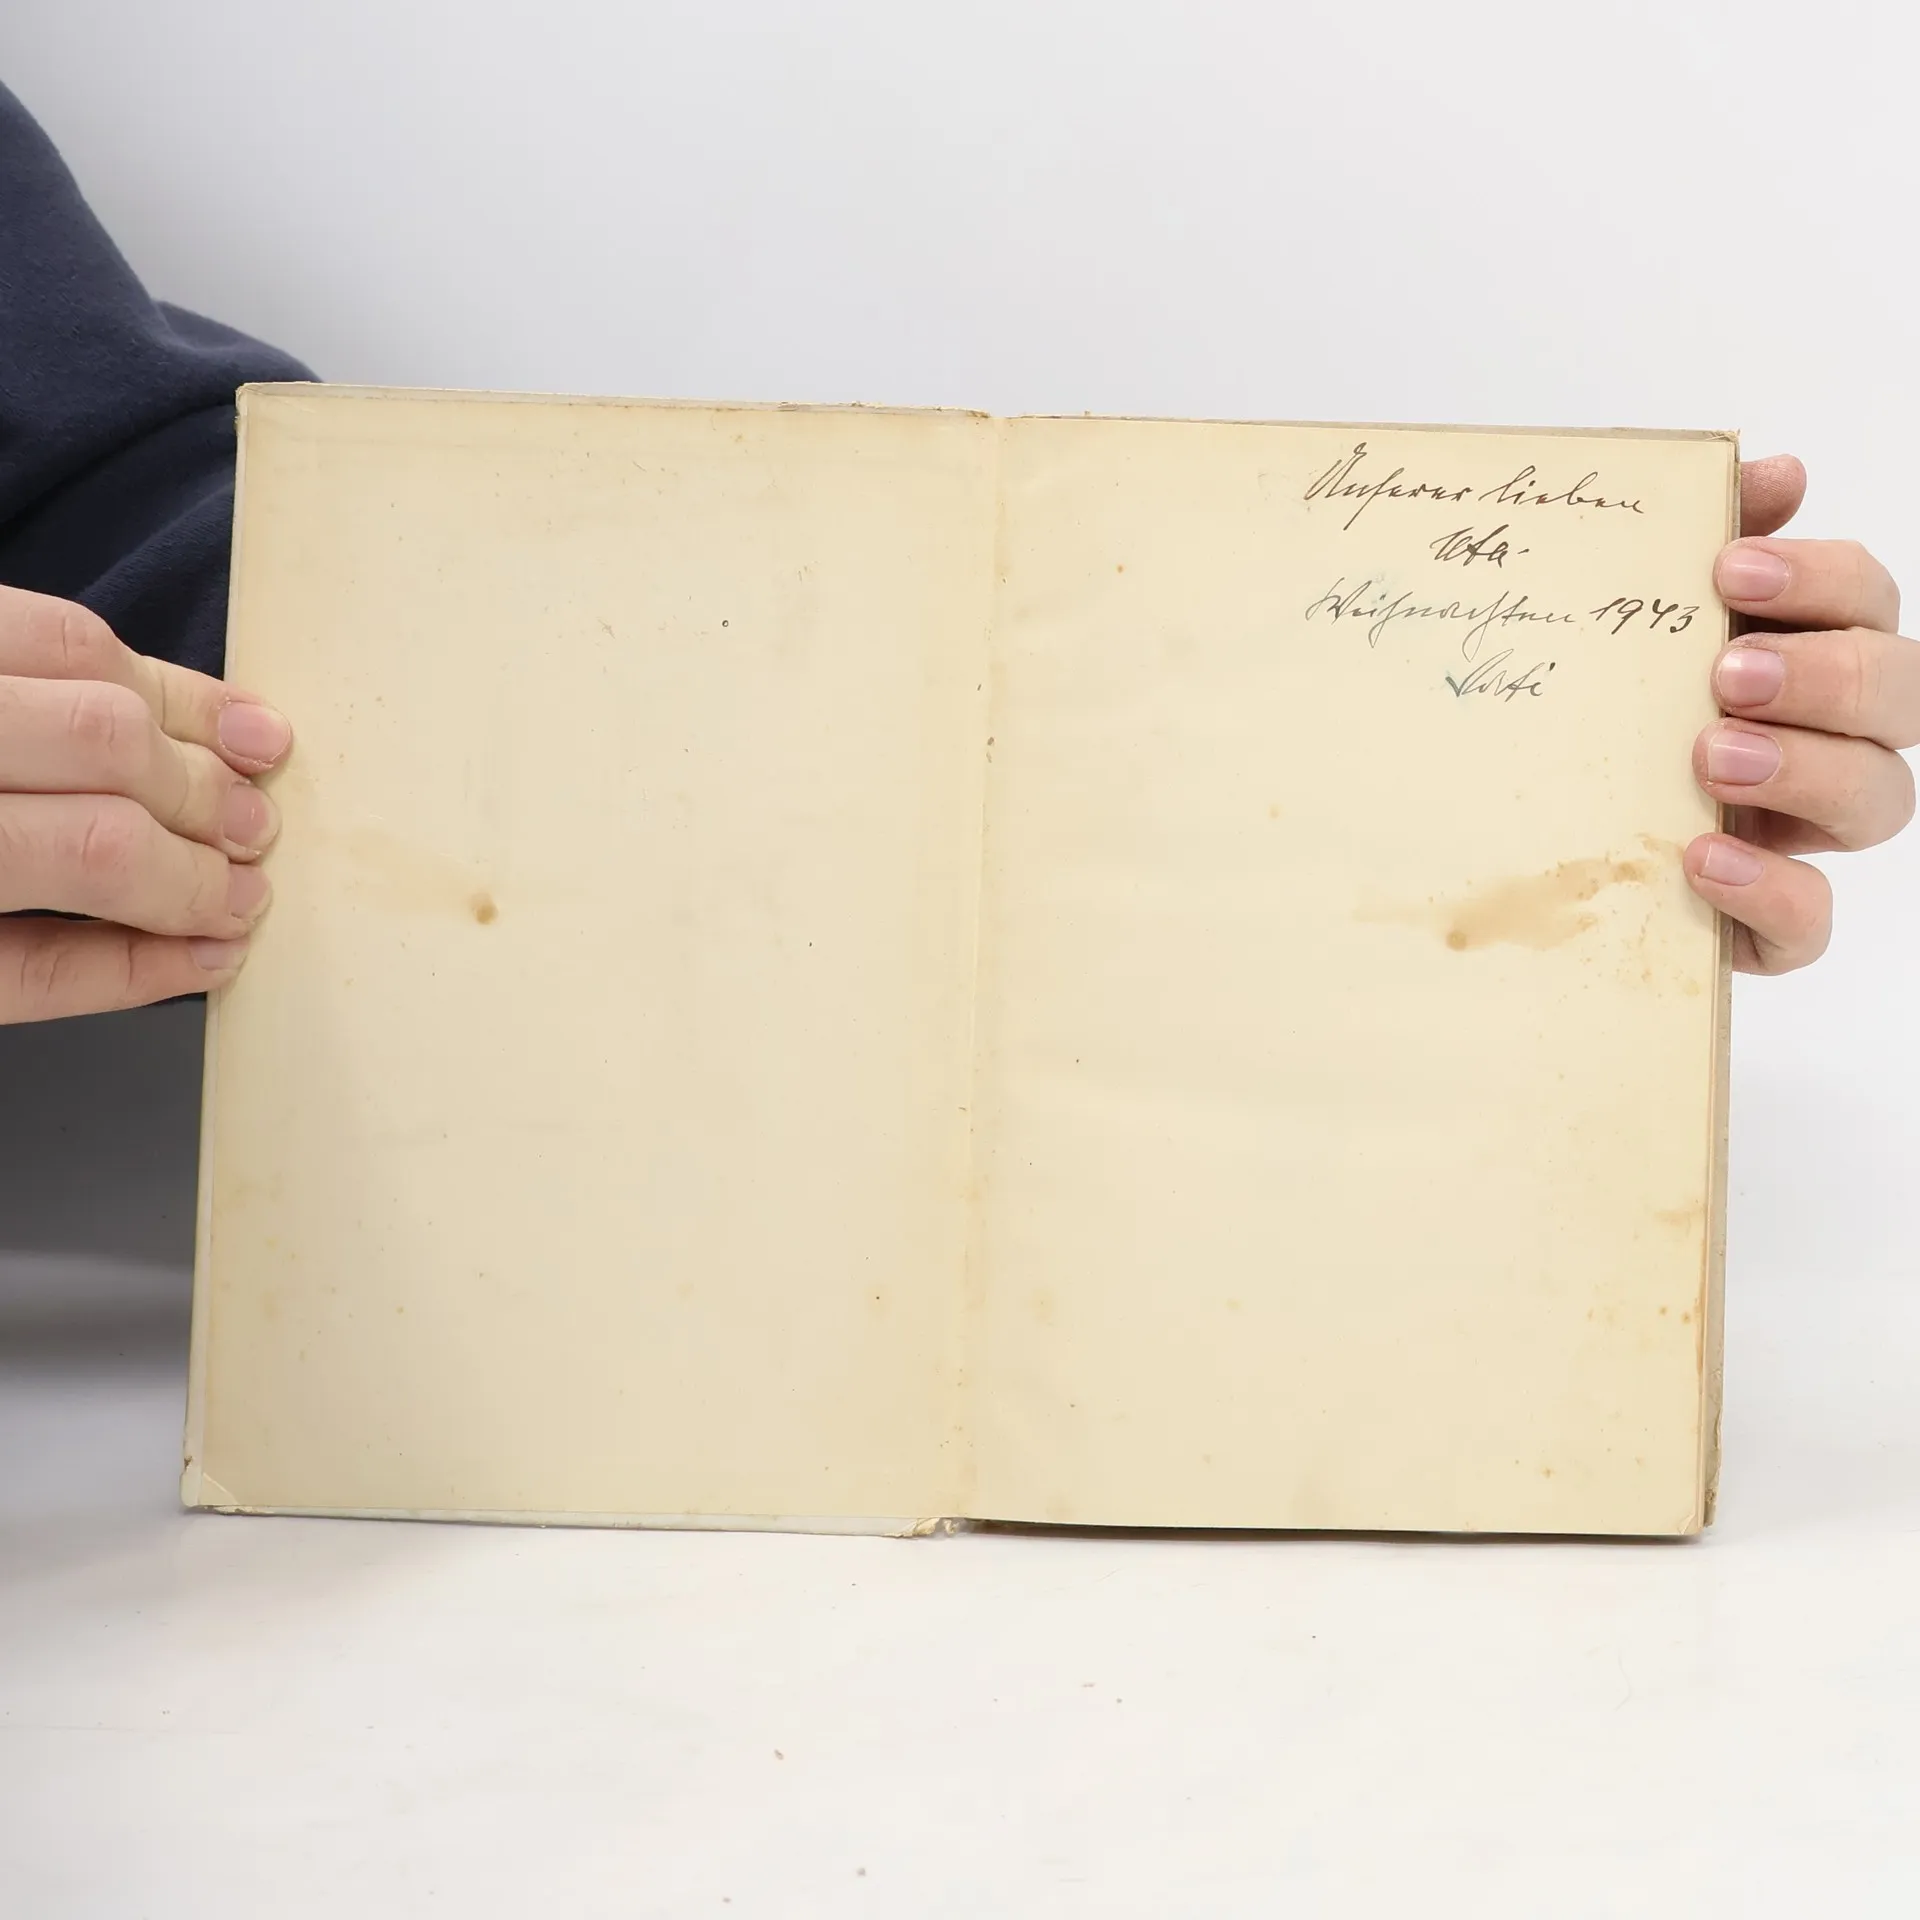 Unserer lieben
Uta.
Weihnachten 1943